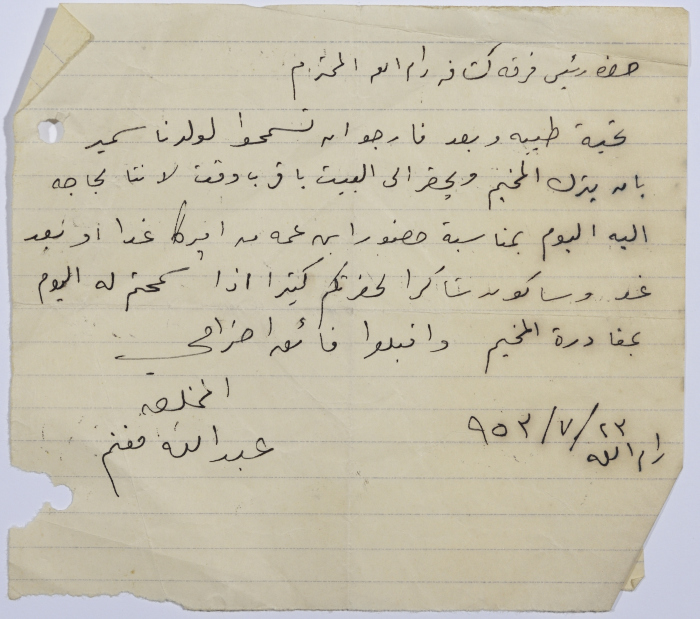 حضرة رئيس فرقة كشافة رام الله المحترم
تحية طيبة وبعد فارجو ان تسمحوا لولدنا سمير
بان يترك المخيم ويحضر الى البيت باقرب وقت لاننا بحاجه
اليه اليوم بمناسبة حضور ابن عمه من اميركا غدا او بعد
غد وساكون شاكرا لحضرتكم كثيرا اذا سمحتم له اليوم
بمغادرة المخيم واقبلوا فائق احترامي
المخلص
عبد الله مغنم
رام الله ٢٣/٧/٩٥٣